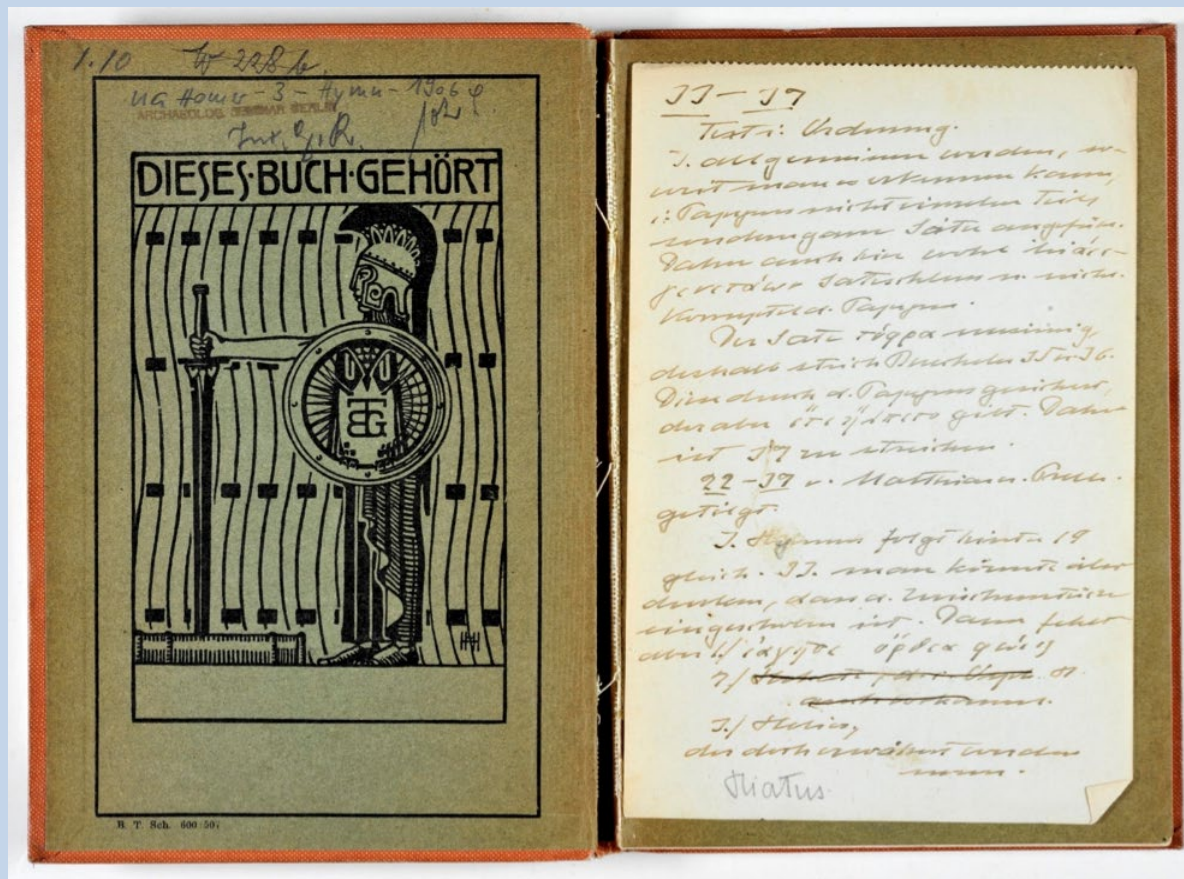 1.10 W 228 b
UG Homer - 3 - Hymn - 1906
ARCHAEOLOG. SEMINAR BERLIN
DIESES·BUCH·GEHÖRT
B. T. Sch. 600 50
33 – 37
Text i: Ordnung.
J. allgemeinen werden, so-
weit man es erkennen kann,
i: Papyrus nicht einzelne Teile
sondern ganze Sätze angeführt.
Daher auch hier wohl
Satzschluss u. nicht
Korruptel d. Papyrus.
Der Satz τόφρα unsinnig,
deshalb strich Buecheler 35 u. 36.
Diese durch d. Papyrus gesichert,
der aber gibt. Daher
ist 37 zu streichen.
22 – 37 v. Matthiae u.
getilgt.
J. Hymnus folgt hinter 19
gleich 33. man könnte also
denken, dass d. Zwischenstück
eingeschoben ist. Dann fehlt
aber 1./
2./
3./ Helios,
der doch erwähnt werden
muss.
Hiatus